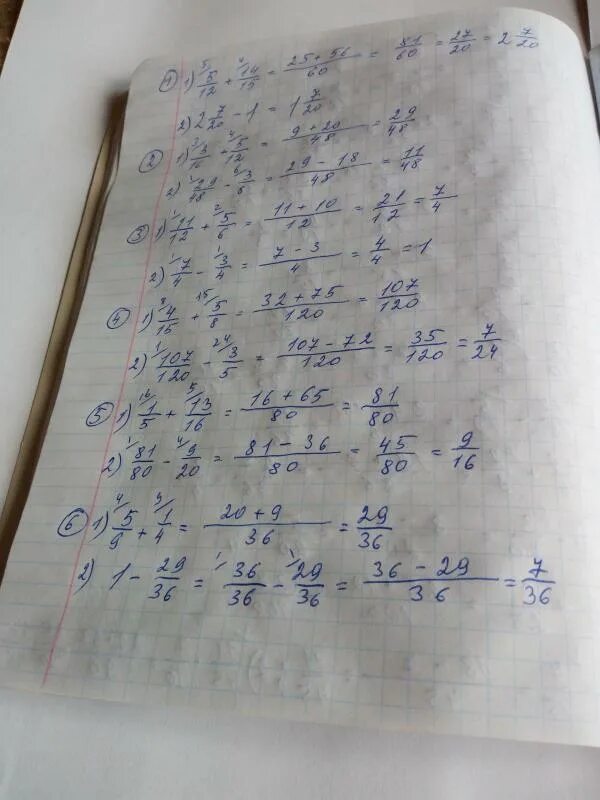 ① 1) 5/12 + 14/15 = (25 + 56)/60 = 81/60 = 27/20 = 2 7/20
2) 2 7/20 - 1 = 1 7/20
② 1) 3/16 + 5/12 = (9 + 20)/48 = 29/48
2) 29/48 - 3/8 = (29 - 18)/48 = 11/48
③ 1) 11/12 + 5/6 = (11 + 10)/12 = 21/12 = 7/4
2) 7/4 - 3/4 = (7 - 3)/4 = 4/4 = 1
④ 1) 4/15 + 5/8 = (32 + 75)/120 = 107/120
2) 107/120 - 3/5 = (107 - 72)/120 = 35/120 = 7/24
⑤ 1) 1/5 + 13/16 = (16 + 65)/80 = 81/80
2) 81/80 - 9/20 = (81 - 36)/80 = 45/80 = 9/16
⑥ 1) 5/9 + 1/4 = (20 + 9)/36 = 29/36
2) 1 - 29/36 = 36/36 - 29/36 = (36 - 29)/36 = 7/36